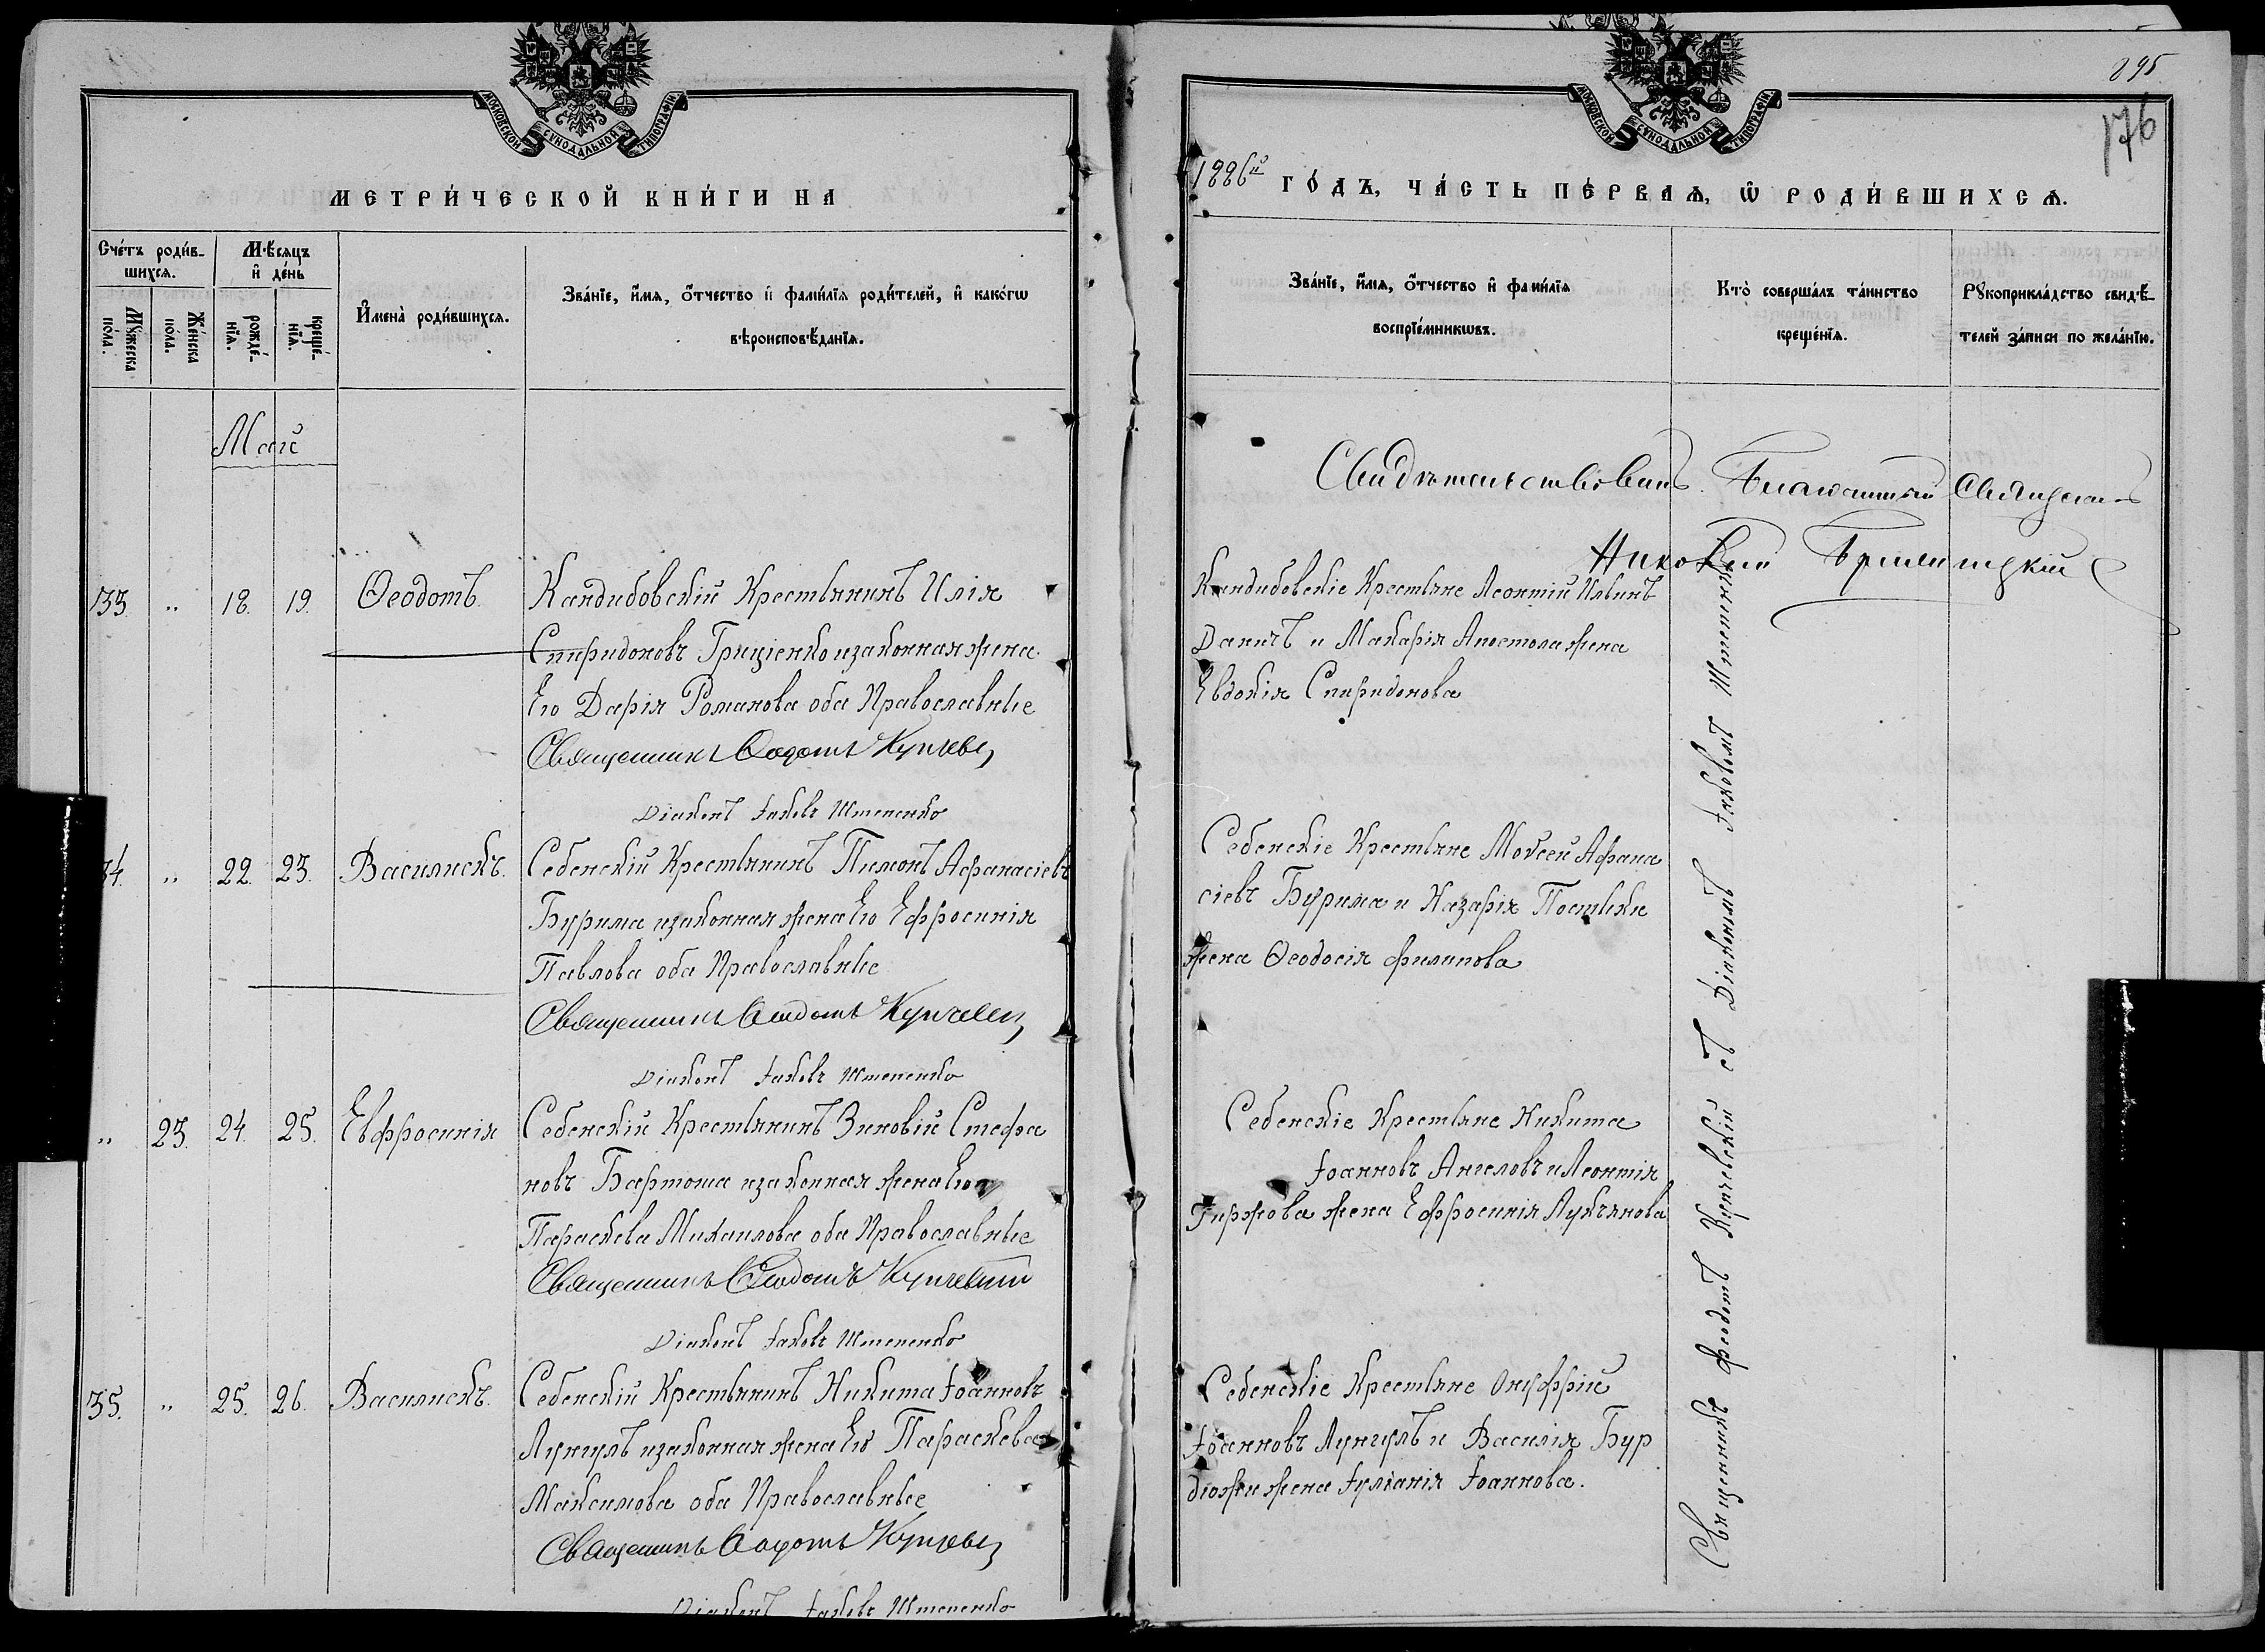 МОСКОВСКОЙ СѴНОДАЛЬНОЙ ТИПОГРАФІИ.
МЕТРИ́ЧЕСКОЙ КНИ́ГИ НА
Сче́тъ роди́в-
шихсѧ.
Мꙋ́жеска
по́ла.
Же́нска
по́ла.
Мѣ́сѧцъ
и҆ де́нь
рожде́-
нїѧ.
креще́-
нїѧ.
И҆мена̀ роди́вшихсѧ.
Зва́нїе, и҆́мѧ, ѻ҆́тчество и҆ фами́лїѧ роди́телей, и҆ како́гѡ
вѣроисповѣ́данїѧ.
Май
33. " 18. 19. Ѳеодотъ
Кандибовскій Крестьянинъ Илія
Спиридоновъ Гриціенко изаконная жена
Его Дарія Романова оба Православные
Священникъ Ѳеодотъ Купчев
Діаконъ Іаковъ Штепенко
34. " 22. 23. Василискъ.
Себенскій Крестьянинъ Пимонъ Афанасіевъ
Бурима изаконная жена Его Ефросинія
Павлова оба Православные
Священникъ Ѳеодотъ Купчев
Діаконъ Іаковъ Штепенко
" 23. 24. 25. Евфросинія
Себенскій Крестьянинъ Зиновій Стефа
новъ Бартоша изаконная жена Его
Параскева Михаилова оба Православные
Священникъ Ѳеодотъ Купчевский
Діаконъ Іаковъ Штепенко
35. " 25. 26. Василискъ.
Себенскій Крестьянинъ Никита Іоанновъ
Лунгулъ изаконная жена Его Параскева
Максимова оба Православные
Священникъ Ѳеодотъ Купчев
Діаконъ Іаковъ Штепенко
895
176
МОСКОВСКОЙ СѴНОДАЛЬНОЙ ТИПОГРАФІИ.
1886й ГО́ДЪ, ЧА́СТЬ ПЕ́РВАѦ, Ѽ РОДИ́ВШИХСѦ.
Зва́нїе, и҆́мѧ, ѻ҆́тчество и҆ фами́лїѧ
воспрїе́мникѡвъ.
Кто̀ соверша́лъ та́инство
креще́нїѧ.
Рꙋкоприкла́дство свидѣ́-
телей за́писи по жела́нїю.
Свидѣтельствовалъ. Благочинный Священникъ
Николай
Кандибовскіе Крестьяне Леонтій Ильинъ
Даничъ и Макарія Апостола жена
Евдокія Спиридонова
Себенскіе Крестьяне Моѵсей Афана
сіевъ Бурима и Назарія Постики
жена Ѳеодосія Филипова
Себенскіе Крестьяне Никита
Іоанновъ Ангеловъ и Леонтія
Гиржова жена Ефросинія Лукьянова
Себенскіе Крестьяне Онуфрій
Іоанновъ Лунгулъ и Василія Бур
дюжи жена Іуліанія Іоаннова.
Священникъ Феодотъ Купчевскій съ Діакономъ Іаковомъ Штепенко